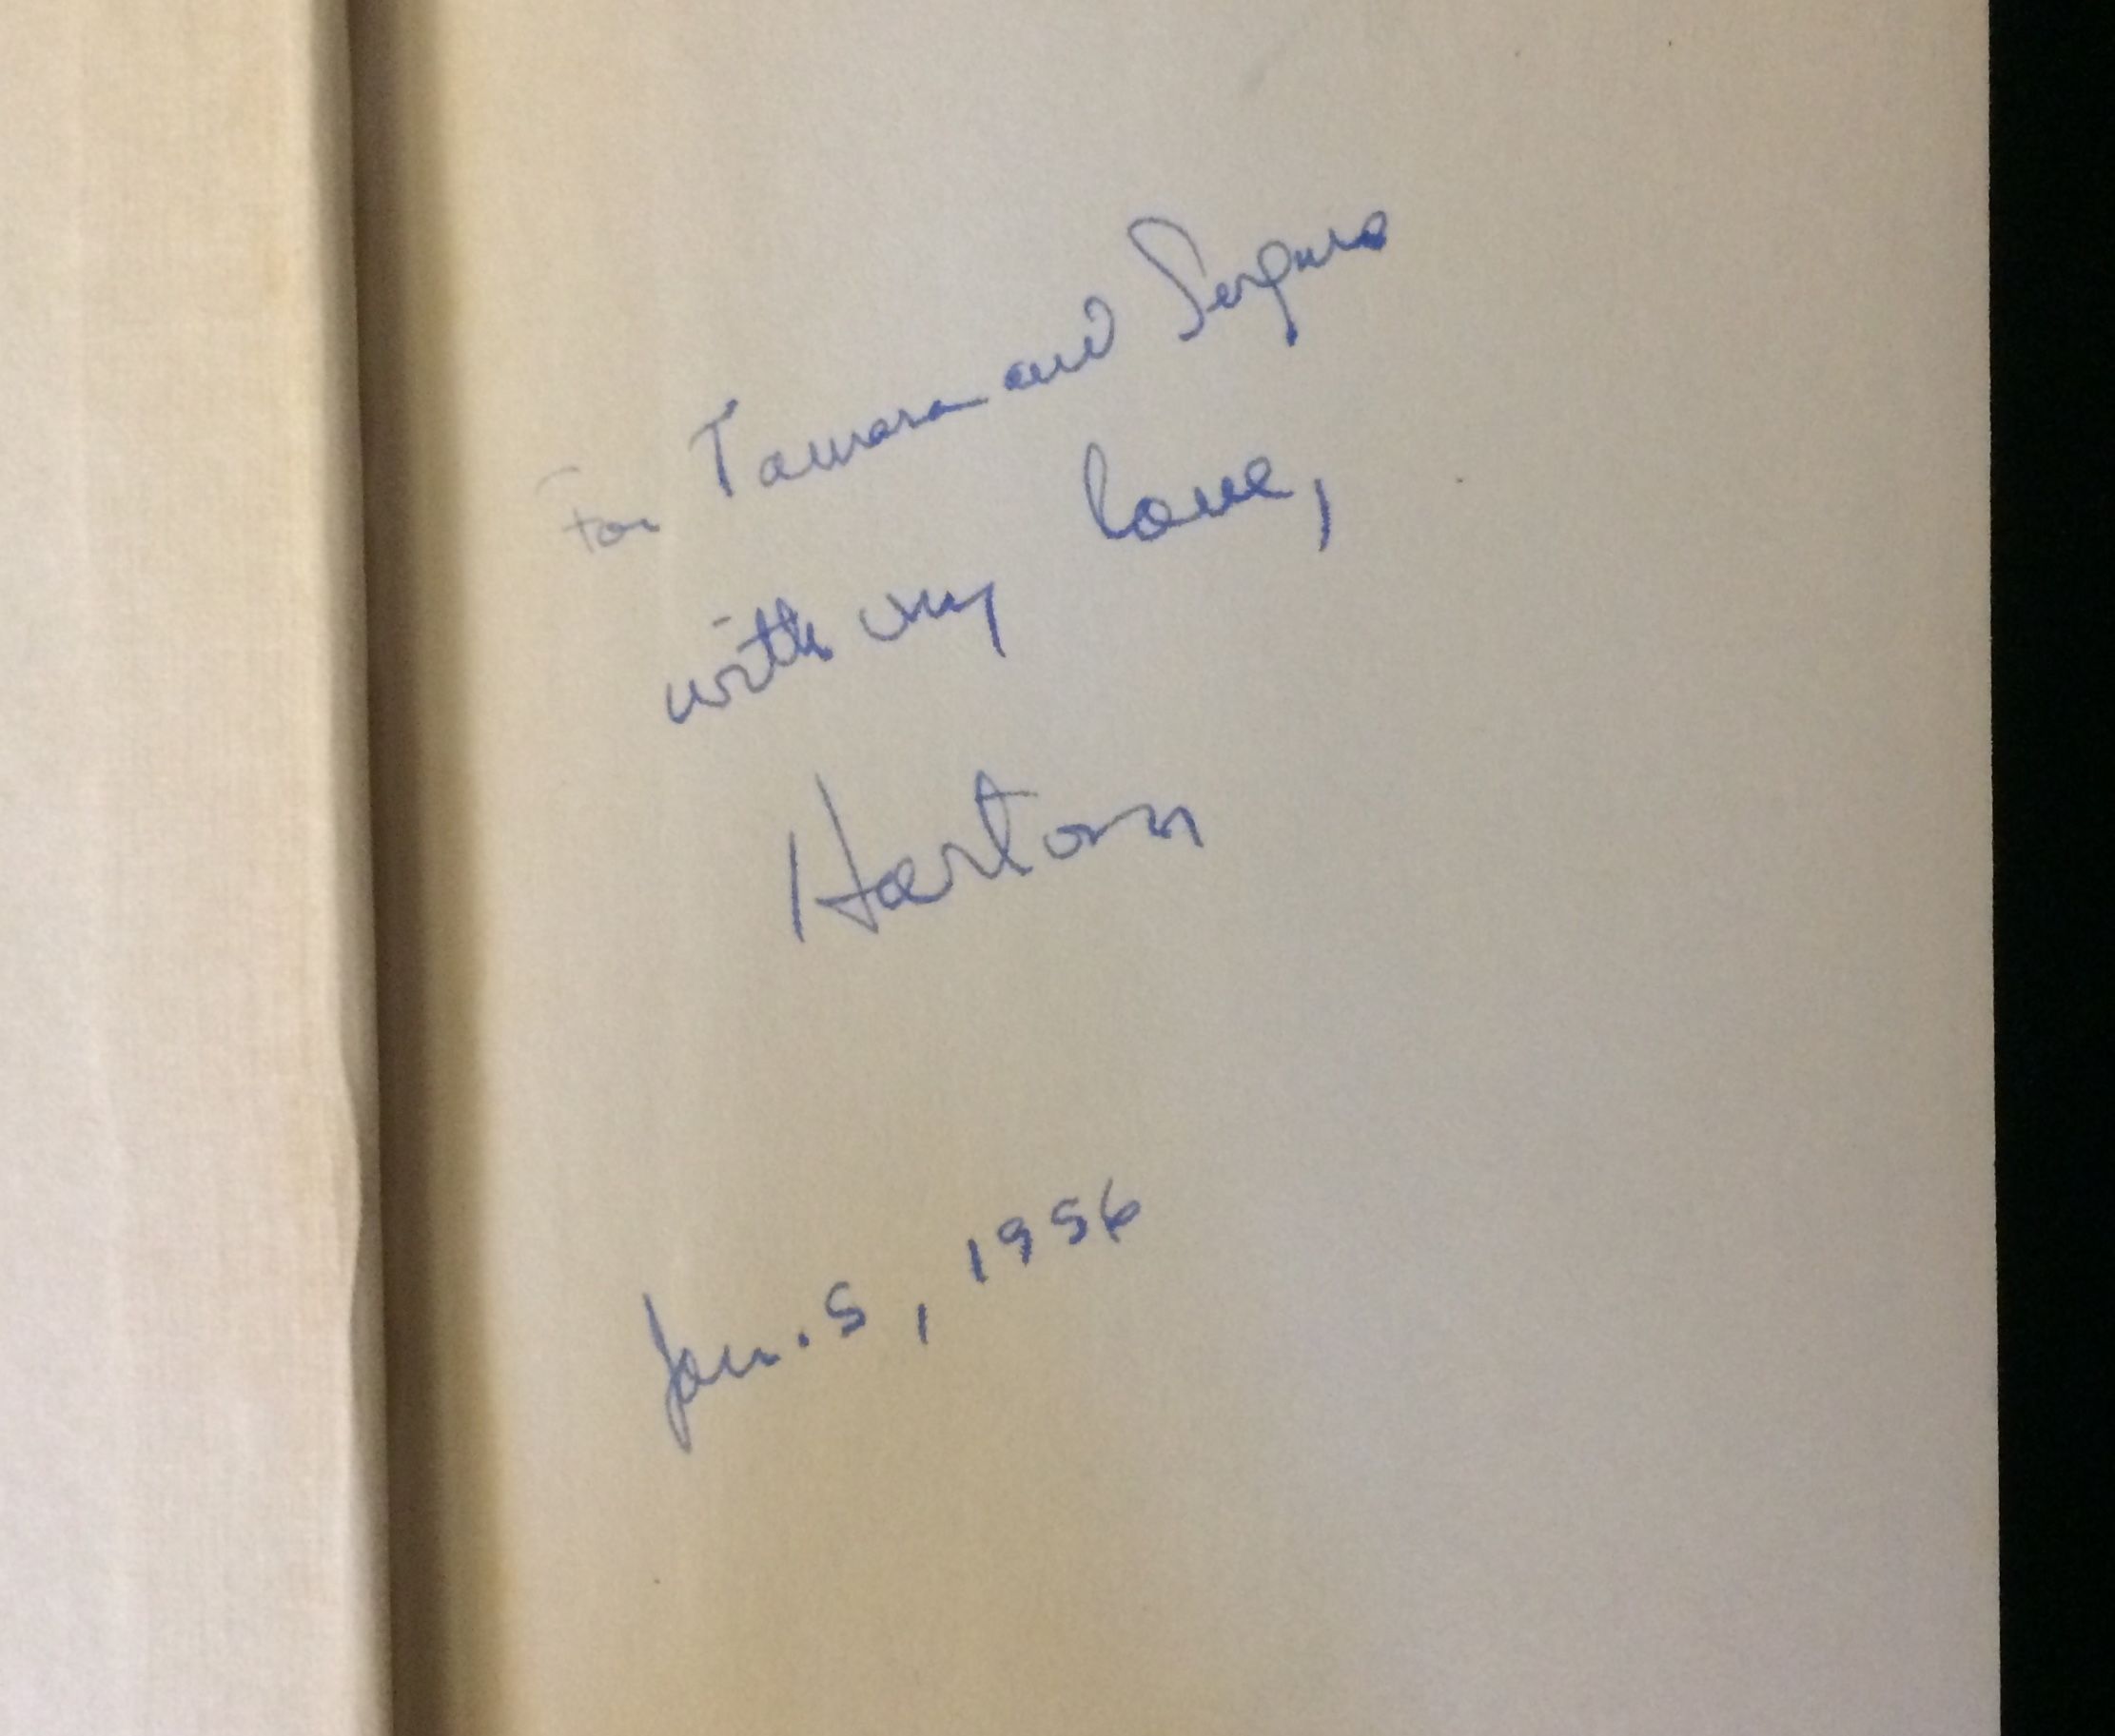 For Tamara and Sergius
with my love,
Hartom
Jan. 5, 1956